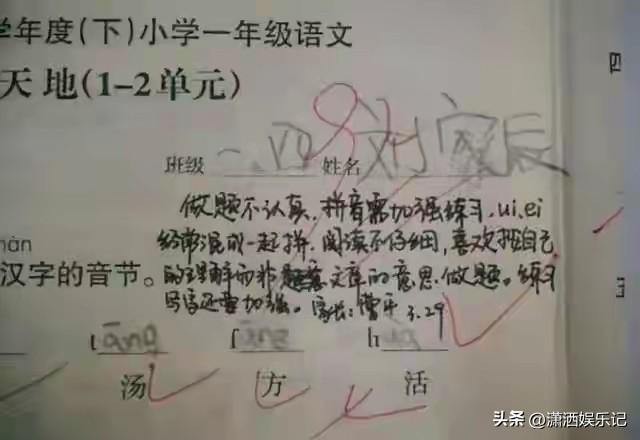 学年度(下)小学一年级语文
天地(1-2单元)
班级 一.四 姓名 刘家辰
做题不认真,拼音需加强练习,ui、ei
经常混成一起拼,阅读不仔细,喜欢按自己
的理解而非题意文章的意思做题。练习
写字还要加强。家长:曾平 3.29
hàn
汉字的音节。
tāng fāng huó
汤 方 活
四
头条 @潇洒娱乐记